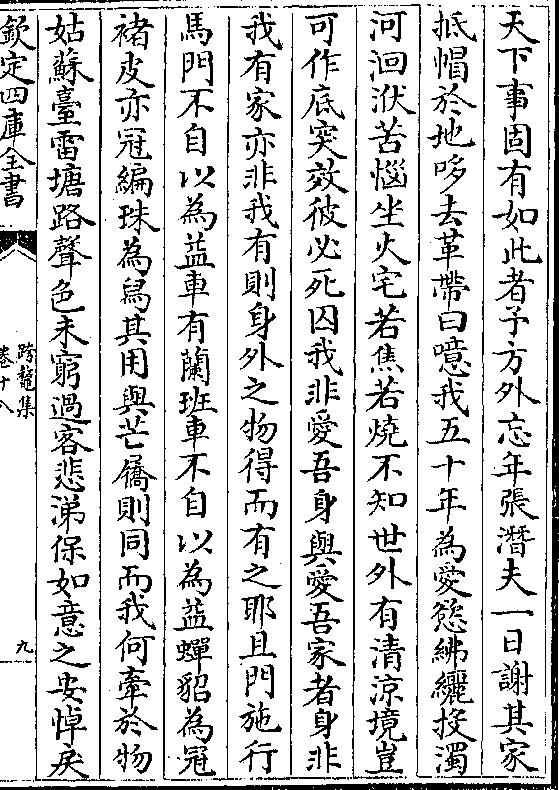 天下事固有如此者予方外忘年張潛夫一日謝其家
抵帽於地哆去革帶曰噫我五十年為愛慾紼纚投濁
河洄洑苦惱坐火宅若焦若燒不知世外有清涼境豈
可作底突效彼必死囚我非愛吾身與愛吾家者身非
我有家亦非我有則身外之物得而有之耶且門施行
馬門不自以為益車有蘭班車不自以為益蟬貂為冠
褚皮亦冠編珠為舄其用與芒僑則同而我何牽於物
姑蘇臺雷塘路聲色未窮過客悲涕保如意之安悼戾
欽定四庫全書
跨鼇集
卷十八
九